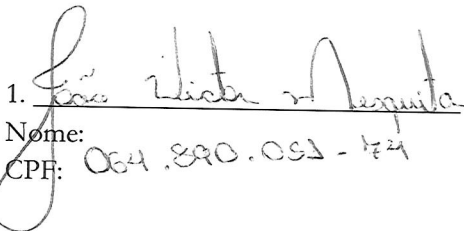 1. João Victor Mesquita
Nome:
CPF: 064.890.051-74